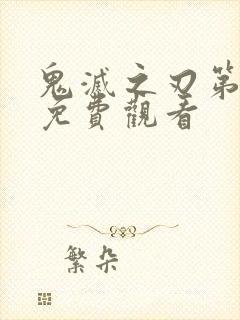 鬼滅之刃第
免費觀看
繁朵